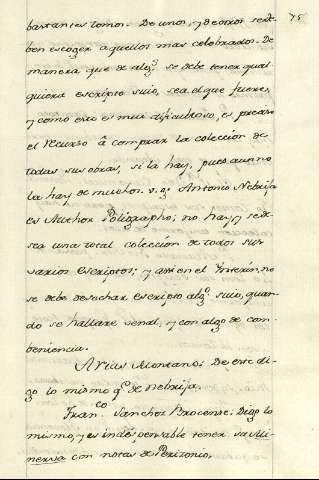 75
bastantes tomos. De unos, y de otros se de-
ben escoger aquellos mas celebrados. De
manera que de alg.º se debe tener qual
quiera escripto suio, sea el que fuere,
y como esto es mui dificultoso, es preciso
el recurso â comprar la coleccion de
todas sus obras, si la hay, pues aun no
la hay de muchos. v. g. Antonio Nebrija
es Author Poligrapho; no hay, y
sea una total coleccion de todos sus
varios Escriptos; y assi en el Ynterin, no
se debe desechar escripto alg.º suio, quan-
do se hallare venal, y con algo de con-
beniencia.
Arias Montano: De este di-
go lo mismo q.e de Nebrija.
Fran.co Sanchez Brocense: Digo lo
mismo, y es indispensable tener su Mi-
nerva con notas de Perizonio.